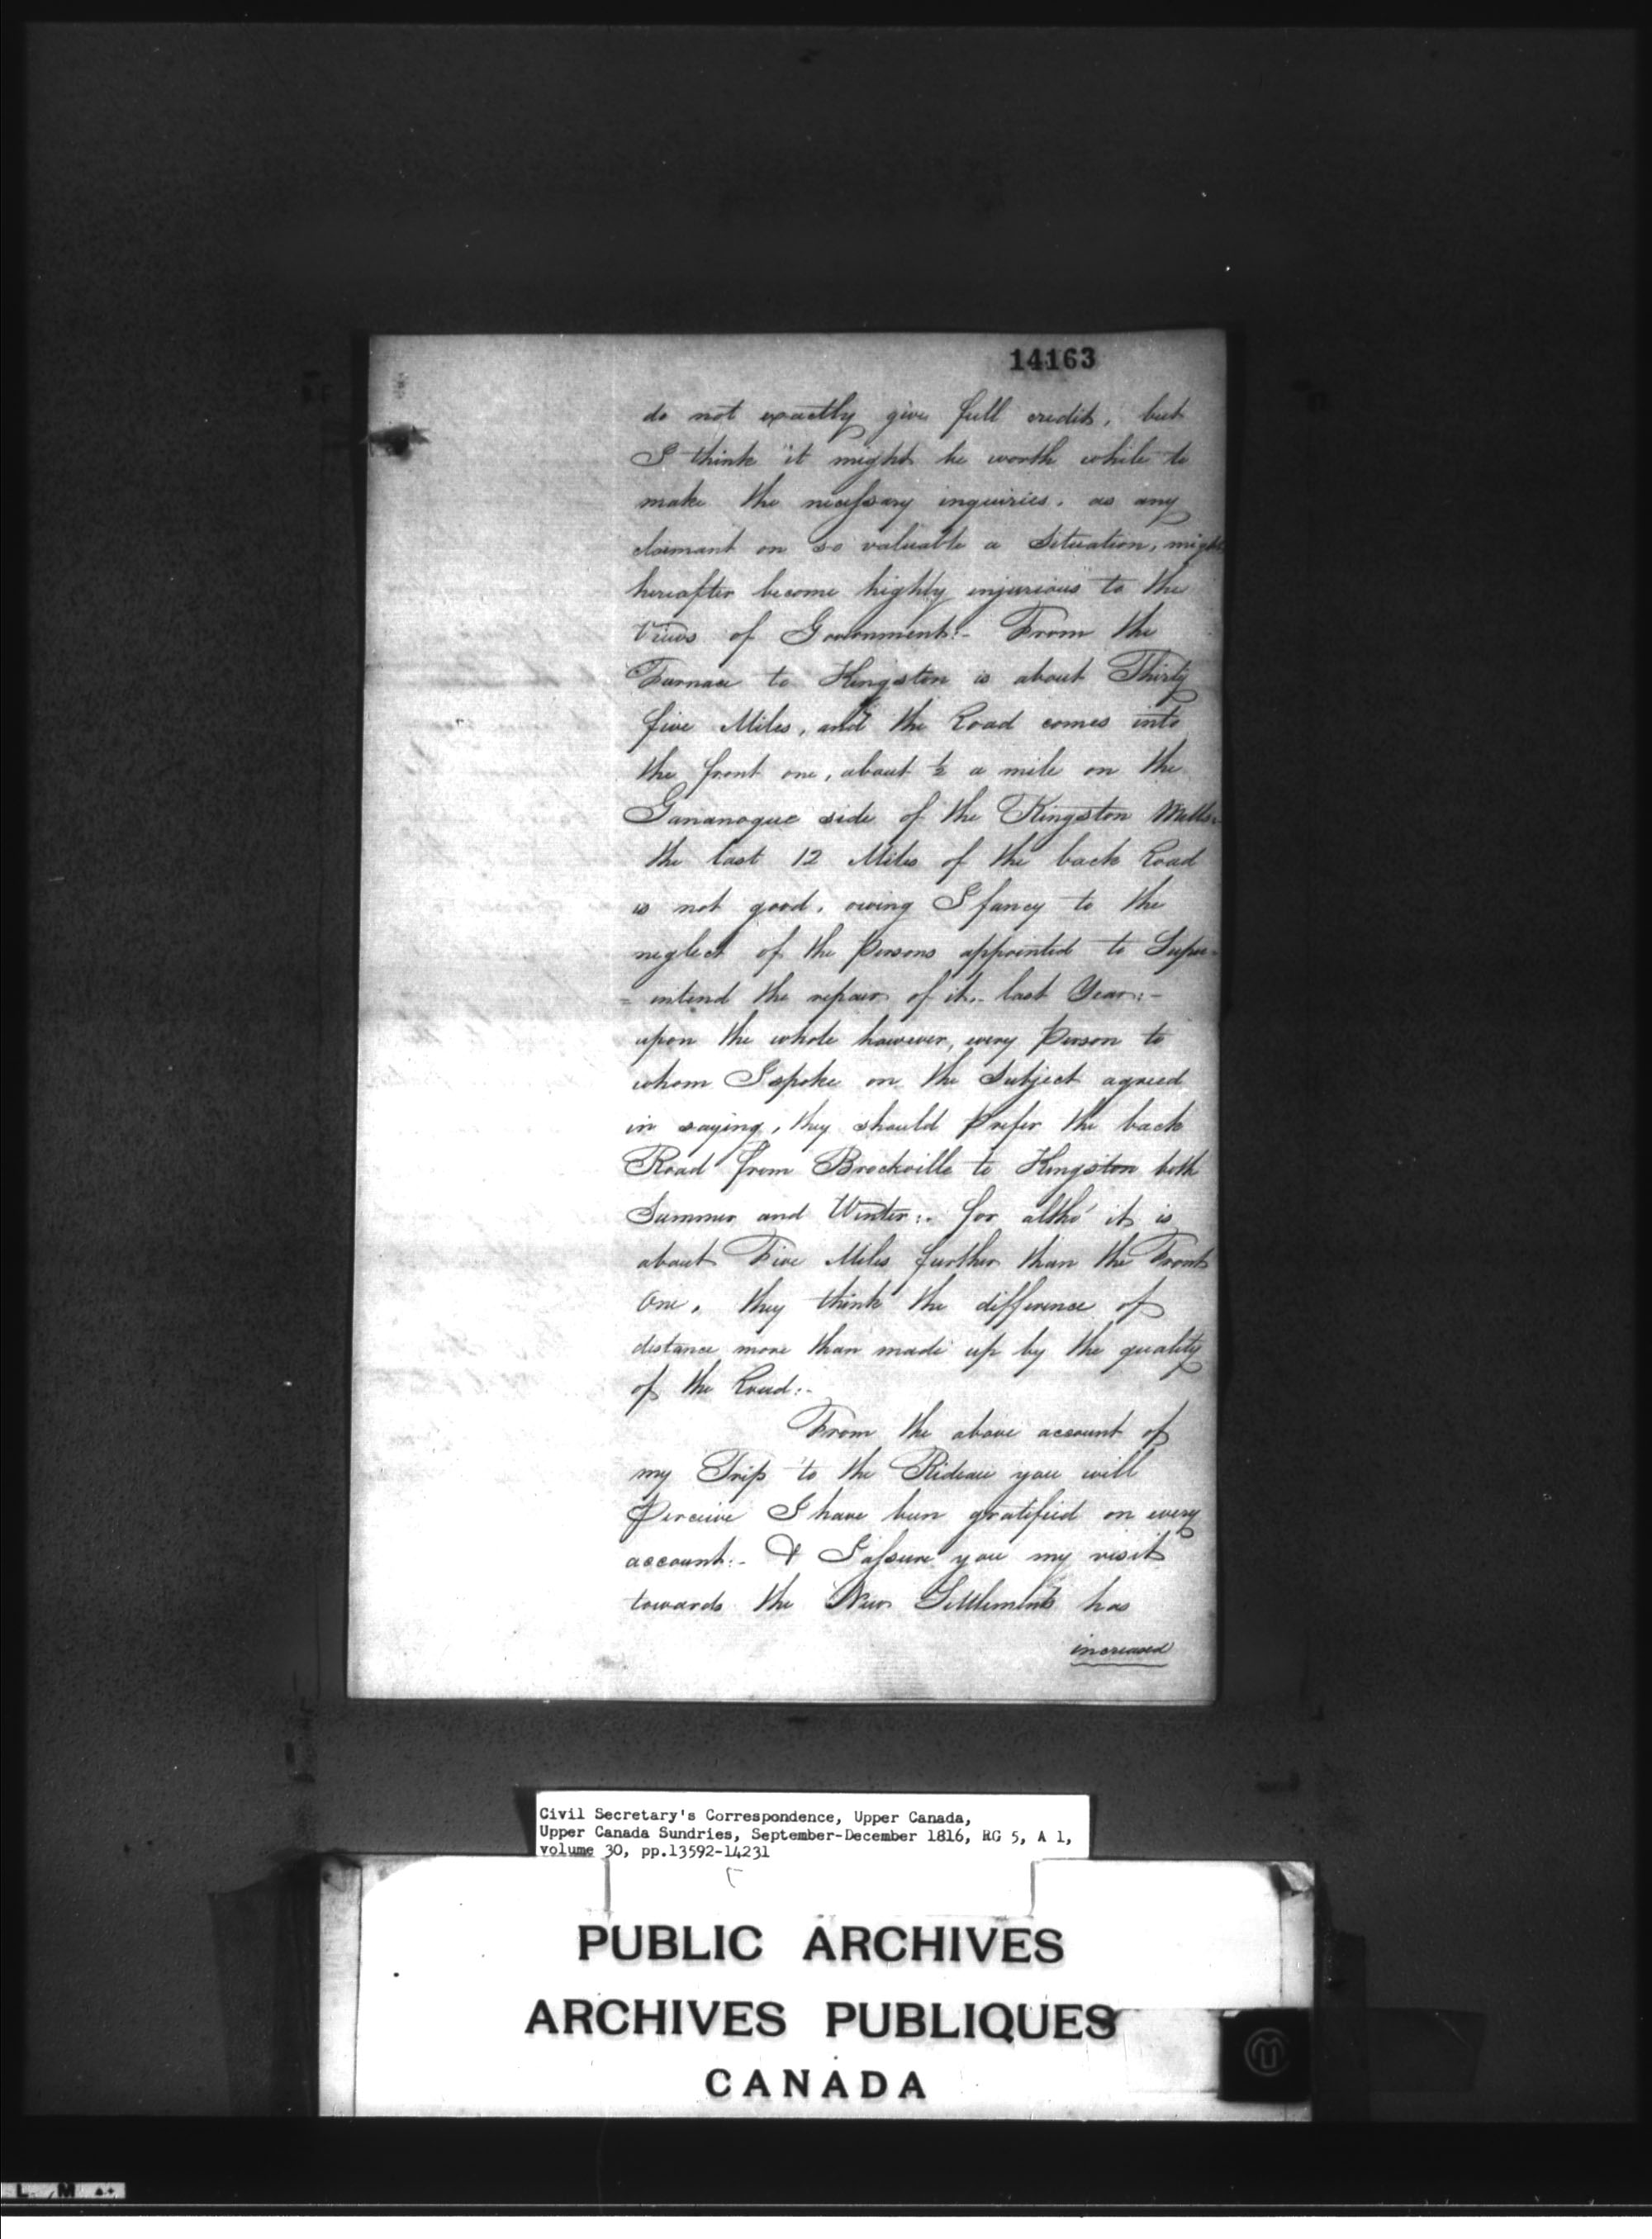 14163
do not exactly give full credit, but
I think it might be worth while to
make the necessary inquiries, as any
claimant on so valuable a Situation, might
hereafter become highly injurious to the
Views of Government:- From the
Furnace to Kingston is about Thirty
five Miles, and the Road comes into
the front one, about ½ a mile on the
Gananoque side of the Kingston Mills-
the last 12 Miles of the back Road
is not good, owing I fancy to the
neglect of the Persons appointed to Super-
= intend the repair of it,- last Year:-
upon the whole however, every Person to
whom I spoke on the Subject agreed
in saying, they should Prefer the back
Road from Brockville to Kingston both
Summer and Winter:- for altho' it is
about Five Miles further than the Front
One, they think the difference of
distance more than made up by the quality
of the Road:-
From the above account of
my Trip to the Rideau you will
Perceive I have been gratified on every
account:- & I assure you my visit
towards the New Settlements has
increased
Civil Secretary's Correspondence, Upper Canada,
Upper Canada Sundries, September-December 1816, RG 5, A 1,
volume 30, pp.13592-14231
PUBLIC ARCHIVES
ARCHIVES PUBLIQUES
CANADA